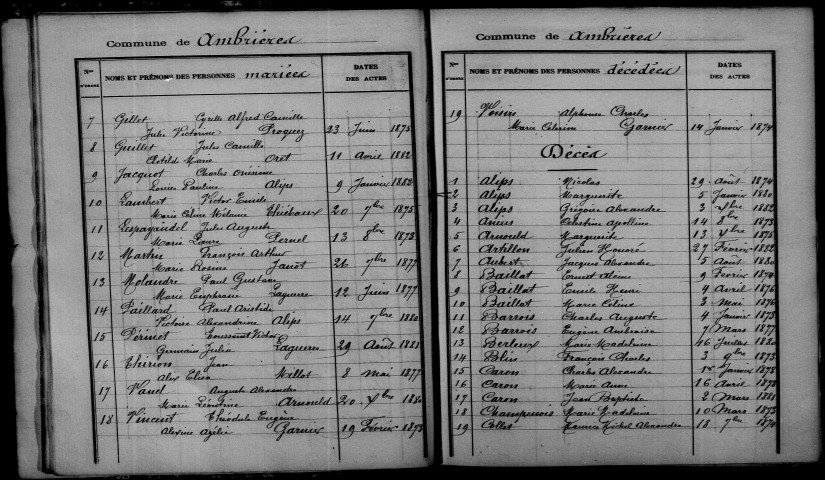 Commune de Ambrières
Nos D'ORDRE NOMS ET PRÉNOMS DES PERSONNES mariées DATES DES ACTES
7 Gillet Cyrille Alfred Camille
Julie Victorine Proquez 23 Juin 1875
8 Guillet Jules Camille
Clotilde Marie Oret 11 Avril 1882
9 Jacquot Charles Onésime
Louise Pauline Alips 9 Janvier 1882
10 Lambert Victor Emile
Marie Céline Mélanie Thiébaux 20 7bre 1875
11 Lespagnandel Jules Auguste
Marie Laure Pernel 13 8bre 1873
12 Martin François Arthur
Marie Rosine Janot 26 7bre 1877
13 Molandre Paul Gustave
Marie Euphrasie Laguerre 12 Juin 1877
14 Paillard Paul Aristide
Victoire Alexandrine Alips 14 7bre 1880
15 Périnet Toussaint Victor
Germaine Julia Laguerre 29 Août 1881
16 Thirion Jean
Alex Elisa Millot 8 Mai 1877
17 Varel Auguste Alexandre
Marie Léontine Arnould 20 Xbre
18 Vincent Théodule Eugène
Alexine Azélie Garnier 19 Février 1873
Commune de Ambrières
Nos D'ORDRE NOMS ET PRÉNOMS DES PERSONNES décédées DATES DES ACTES
19 Voisin Alphonse Charles
Marie Célérine Garnier 14 Janvier 1874
Décès
1 Alips Nicolas 29 Août 1874
2 Alips Marguerite 5 Janvier 1880
3 Alips Grégoire Alexandre 3 Xbre 1882
4 Apolline 14 8bre 1873
5 Arnould Marguerite 13 Xbre 1875
6 Artillon Julien Honoré 27 Février 1882
7 Aubert Jacques Alexandre 5 Août 1880
8 Baillat Ernest 9 Février 1874
9 Baillat Emile Henri 4 Avril 1876
10 Baillat Marie Céline 3 Mai 1876
11 Barrois Charles Auguste 4 Janvier 1873
12 Barrois Eugène Ambroise 7 Mars 1877
13 Berleux Marie Madeleine 16 Juillet 1880
14 Blin François Charles 3 9bre 1873
15 Caron Charles Alexandre 1er Janvier 1878
16 Caron Marie Anne 16 Avril 1873
17 Caron Jean Baptiste 2 Mars 1881
18 Champenois Marie Madeleine 10 Mars 1873
19 Collet Maurice Michel Alexandre 18 7bre 1874